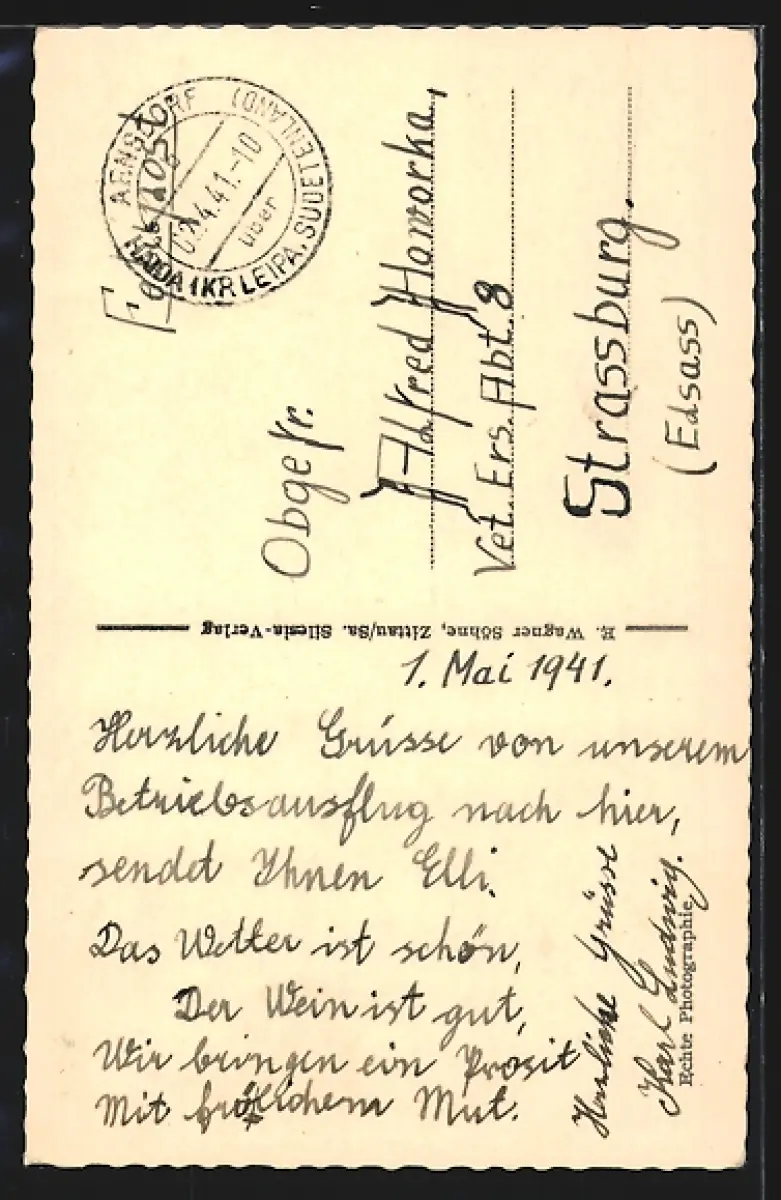 1. Mai 1941.
Herzliche Grüsse von unserem
Betriebsausflug nach hier,
sendet Ihnen Elli.
Das Wetter ist schön,
Der Wein ist gut,
Wir bringen ein Prosit
Mit fröhlichem Mut.
Herzliche Grüsse
Karl Ludwig.
Echte Photographie
E. Wagner Söhne, Zittau/Sa. Silesia-Verlag
ARNSDORF (SUDETENLAND)
02.4.41.-10
über
HAIDA (KR LEIPA,
Obgefr.
Alfred Haworka,
Vet. Ers. Abt. 8
Strassburg.
(Edsass)